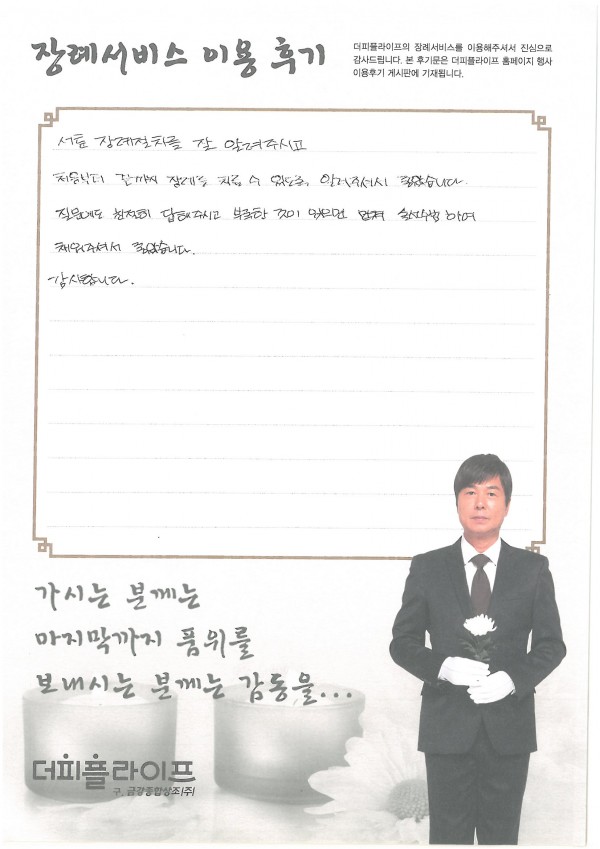 장례서비스 이용 후기
더피플라이프의 장례서비스를 이용해주셔서 진심으로
감사드립니다. 본 후기문은 더피플라이프 홈페이지 행사
이용후기 게시판에 기재됩니다.
서툰 장례절차를 잘 알려주시고
처음부터 끝까지 장례를 치를 수 있도록 알려주셔서 좋았습니다.
질문에도 친절히 답해주시고 부족한 것이 있으면 먼저 하여
채워주셔서 좋았습니다.
감사합니다.
가시는 분께는
마지막까지 품위를
보내시는 분께는 감동을...
더피플라이프
구. 금강종합상조(주)